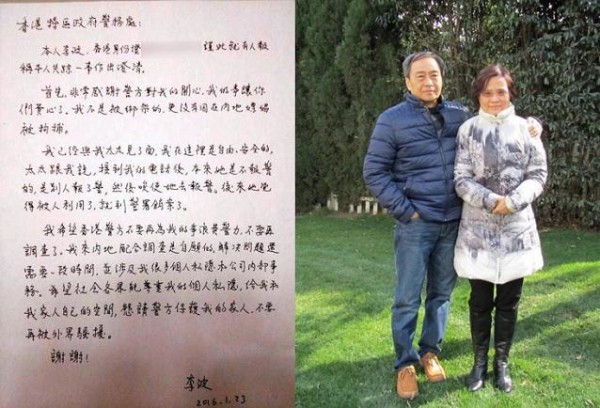 香港特区政府警務處:
本人李波，香港身份證 謹此就有人報
稱本人失踪一事作出澄清。
首先，非常感謝警方對我的關心，我的事讓你
們費心了。我不是被绑架的，更没有因在内地嫖娼
被拘捕。
我已经與我太太見了面，我在這裡是自由、安全的。
太太跟我説，接到我的電話後，本來她是不報警
的，是别人報了警，然後唆使她去報警。後來她覚
得被人利用了，就到警署銷案了。
我希望香港警方不要再為我的事浪費警力，不要再
調查了。我來内地配合調查是自願的，解决問題还
需要一段時間，並涉及我很多個人私隱和公司内部事
務。希望社会各界能尊重我的個人私隱，给我和
我家人自己的空間，懇請警方保護我的家人，不要
再被外界騷擾。
謝謝!
李波
2016.1.23